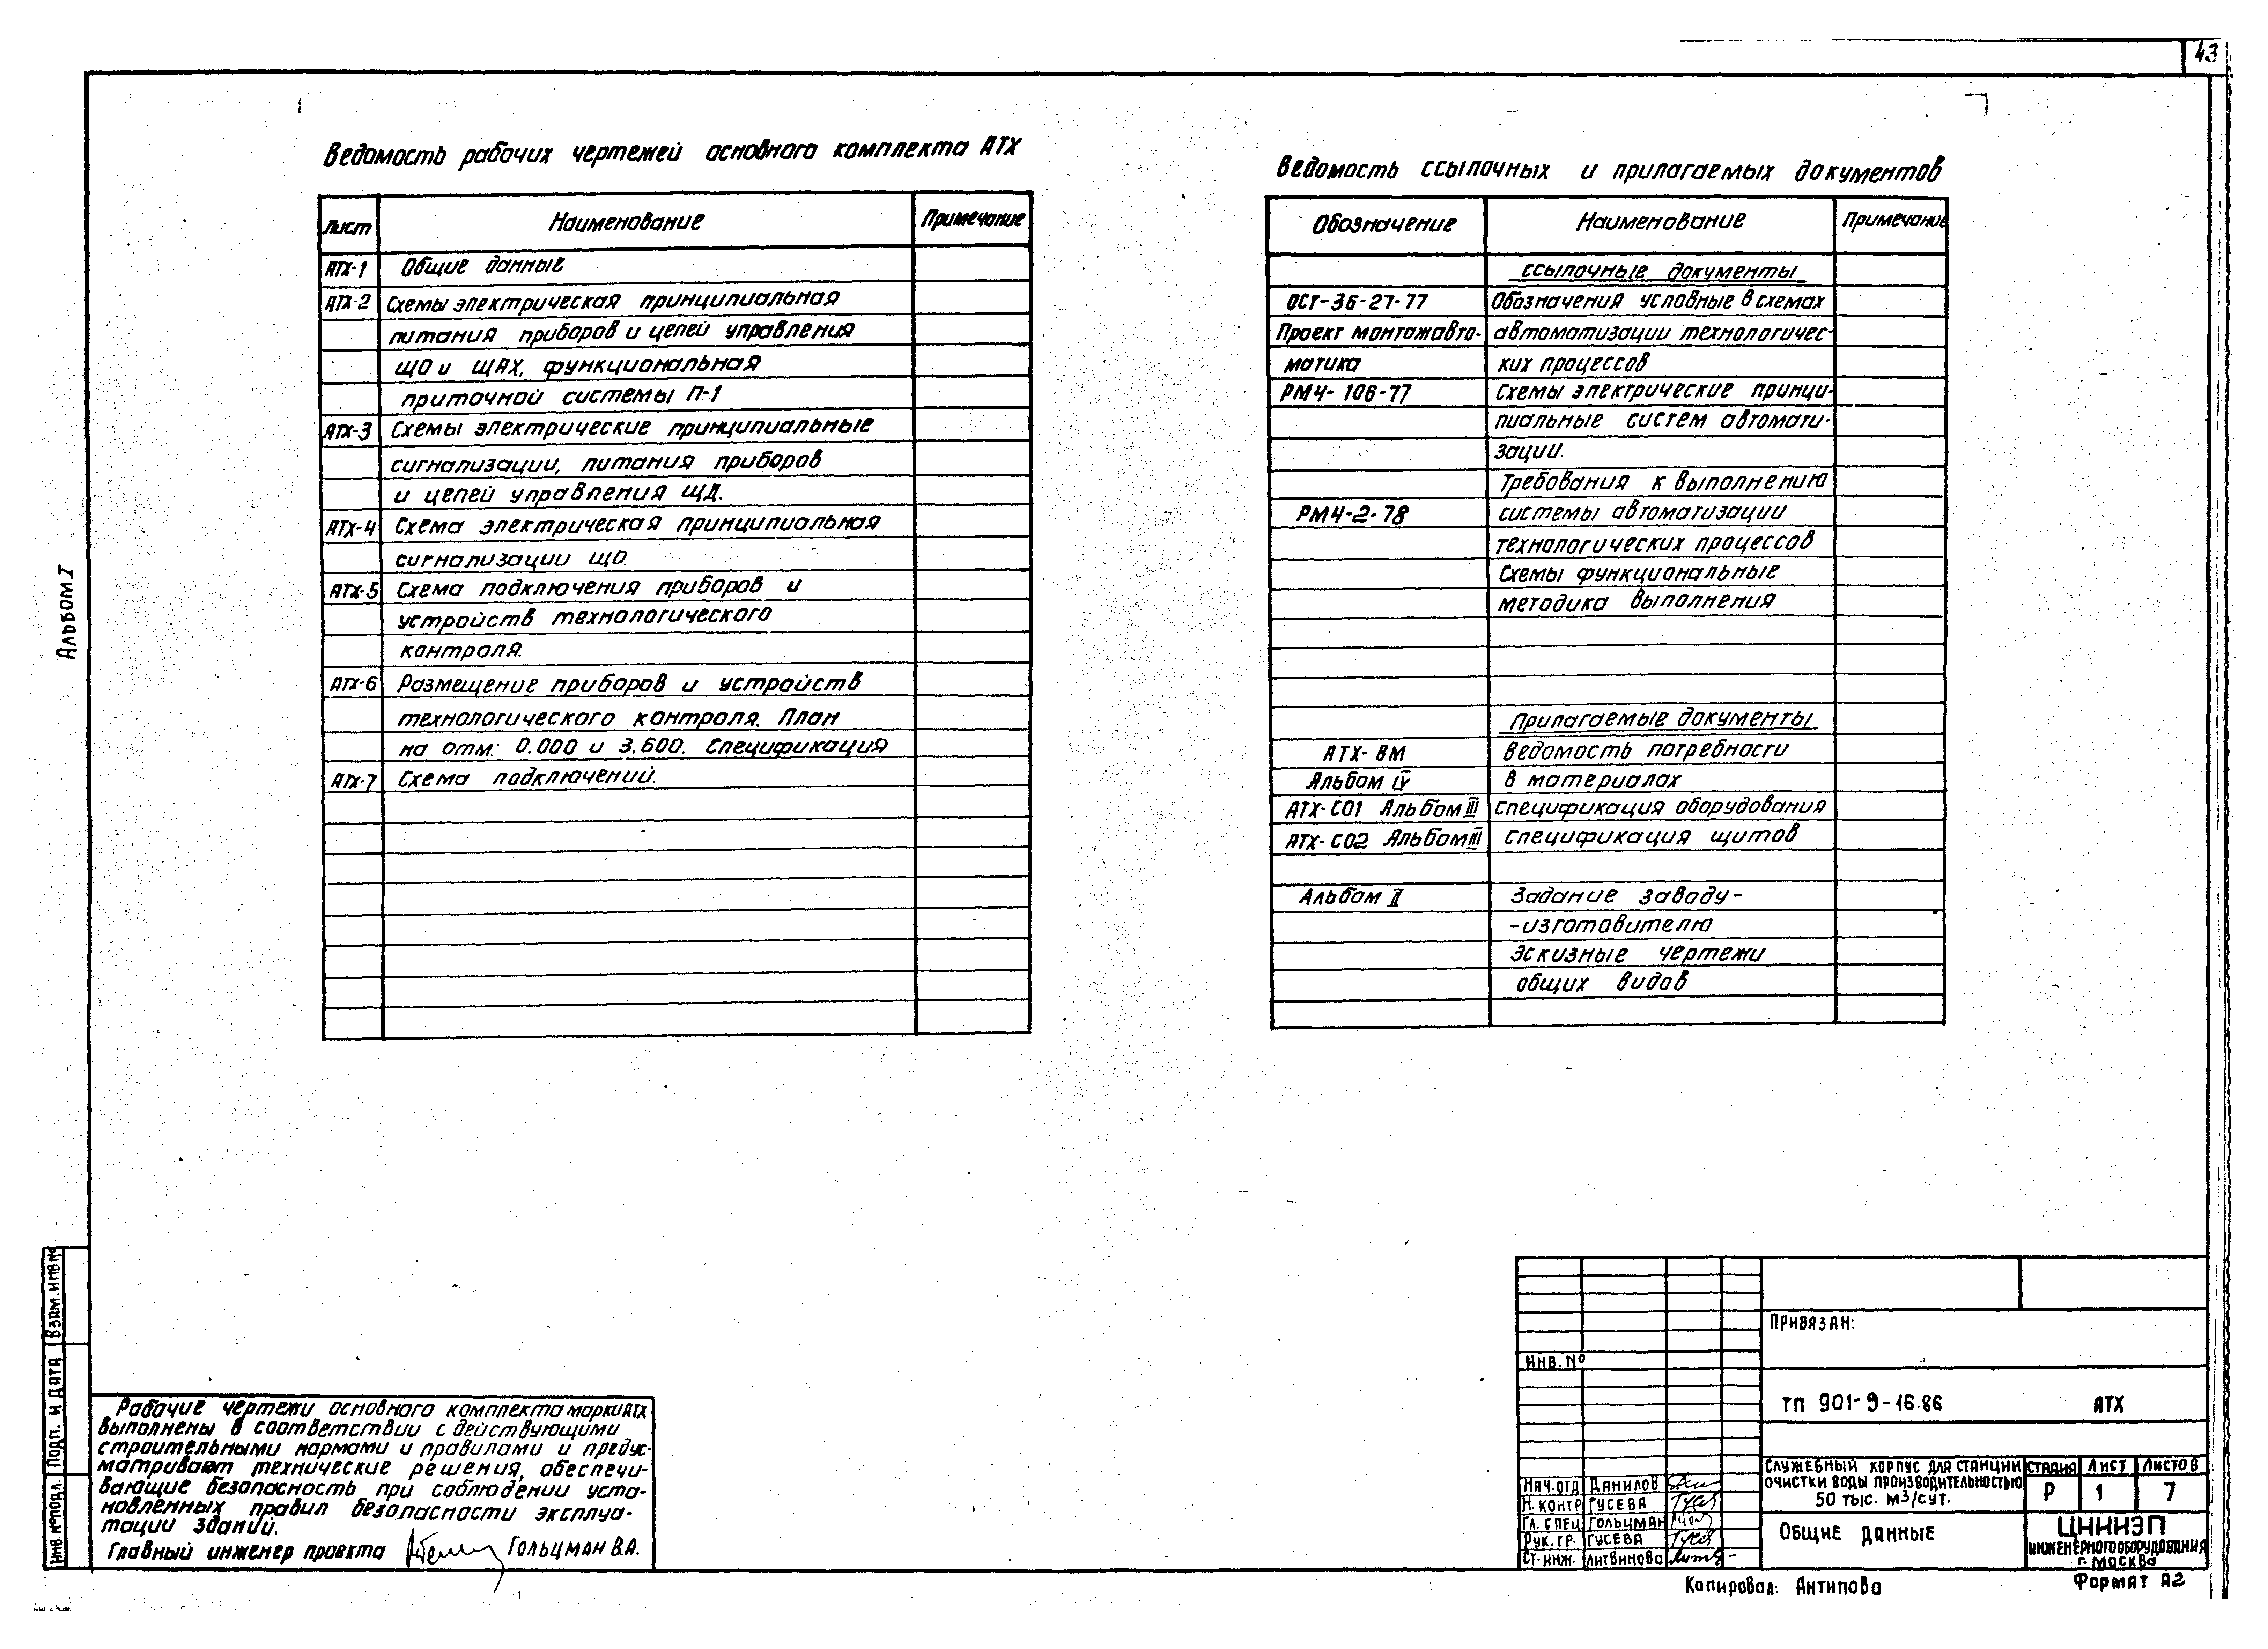 43
Альбом I
Ведомость рабочих чертежей основного комплекта АТХ
Лист Наименование Примечание
АТХ-1 Общие данные
АТХ-2 Схемы электрическая принципиальная
питания приборов и цепей управления
ЩО и ЩАХ, функциональная
приточной системы П-1
АТХ-3 Схемы электрические принципиальные
сигнализации, питания приборов
и цепей управления ЩД.
АТХ-4 Схема электрическая принципиальная
сигнализации ЩО.
АТХ-5 Схема подключения приборов и
устройств технологического
контроля.
АТХ-6 Размещение приборов и устройств
технологического контроля. План
на отм. 0.000 и 3.600. Спецификация
АТХ-7 Схема подключений.
Ведомость ссылочных и прилагаемых документов
Обозначение Наименование Примечание
Ссылочные документы
ОСТ-36-27-77 Обозначения условные в схемах
Проект монтажавто- автоматизации технологичес-
матика ких процессов
РМ4-106-77 Схемы электрические принци-
пиальные систем автомати-
зации.
Требования к выполнению
РМ4-2-78 системы автоматизации
технологических процессов
Схемы функциональные
методика выполнения
Прилагаемые документы
АТХ-ВМ Ведомость потребности
Альбом IV в материалах
АТХ-С01 Альбом III Спецификация оборудования
АТХ-С02 Альбом III Спецификация щитов
Альбом II Задание заводу-
-изготовителю
Эскизные чертежи
общих видов
Взам. инв №
Подп. и дата
Инв. № подл
Рабочие чертежи основного комплекта марки АТХ
выполнены в соответствии с действующими
строительными нормами и правилами и предус-
матривают технические решения, обеспечи-
вающие безопасность при соблюдении уста-
новленных правил безопасности эксплуа-
тации зданий.
Главный инженер проекта Гольцман В.А.
Привязан:
Инв. №
ТП 901-9-16.86 АТХ
Служебный корпус для станции
очистки воды производительностью
50 тыс. м3/сут.
Стадия Лист Листов
Р 1 7
Нач. отд Данилов
Н. контр Гусева
Гл. спец Гольцман
Рук. гр. Гусева
Ст. инж. Литвинова
Общие данные
ЦНИИЭП
инженерного оборудования
г. Москва
Копировал: Антипова
Формат А2